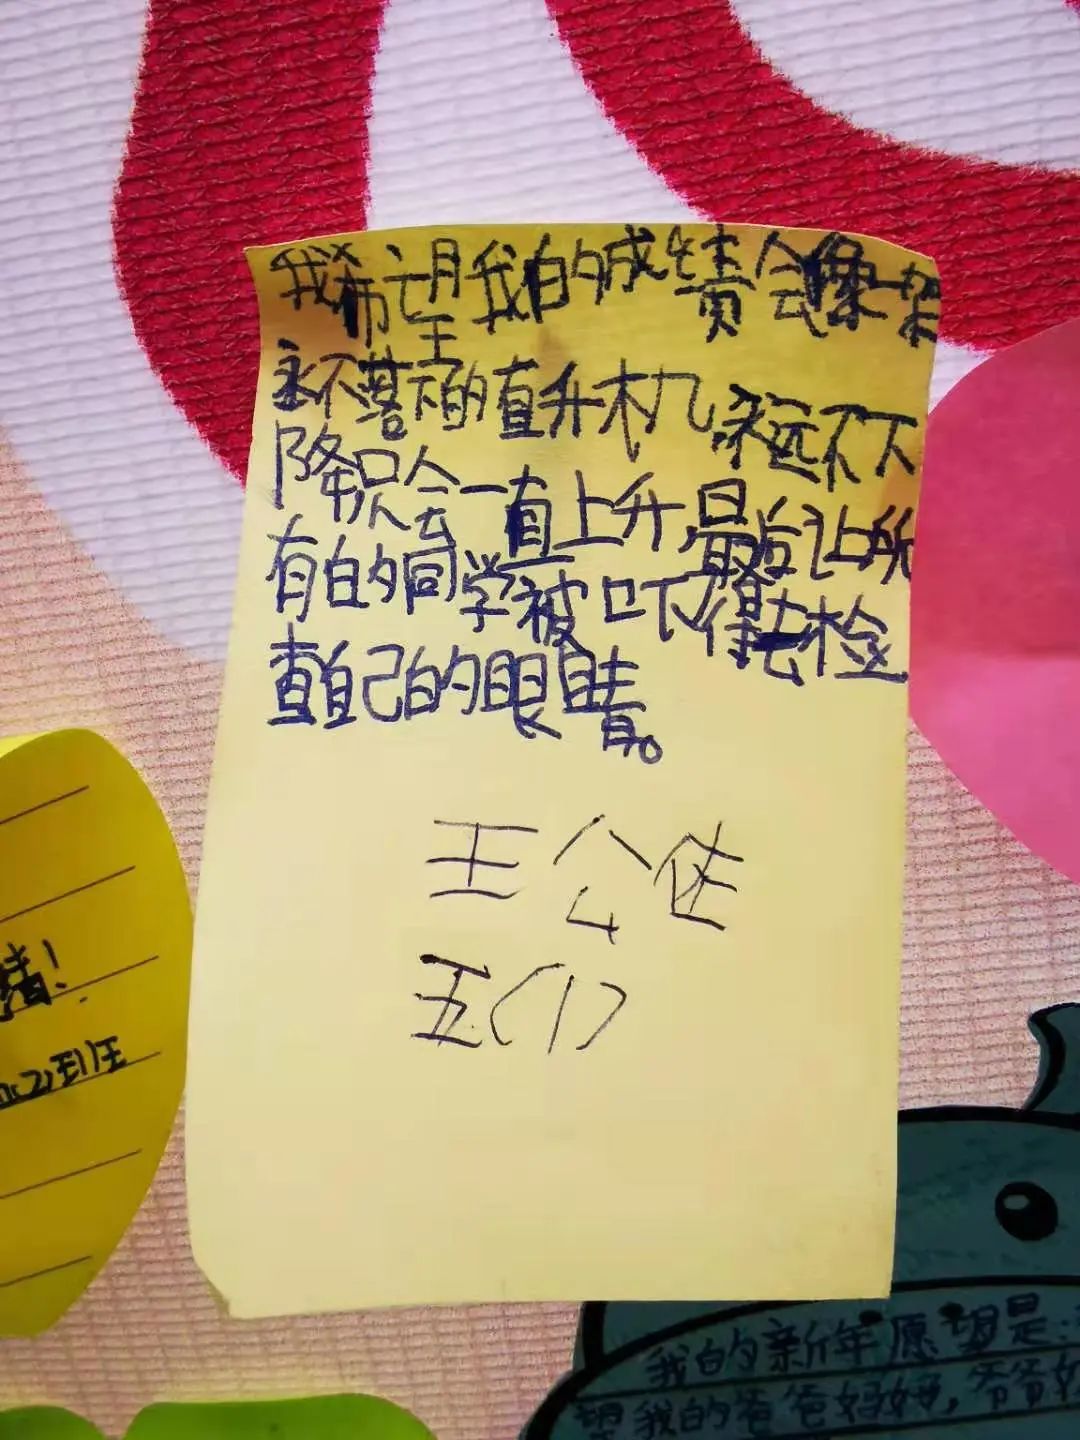 我希望我的成绩会像一架
永不落下的直升机,永远不下
降,只会一直上升,最后让所
有的同学被吓得去检
查自己的眼睛。
王公佐
五(1)
!
(2)班王
我的新年愿望是:
望我的爸爸妈妈,爷爷